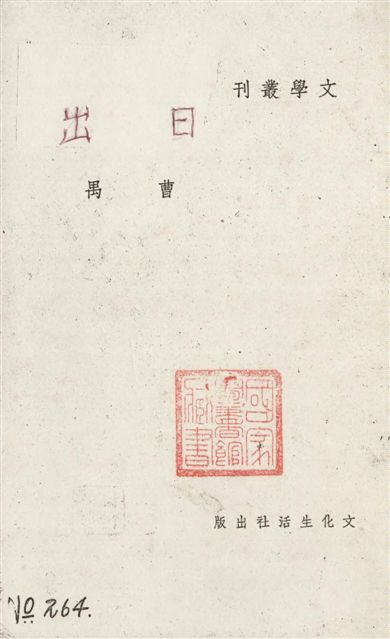 文學叢刊
日出
曹禺
國家圖書館藏書
文化生活社出版
No 264.